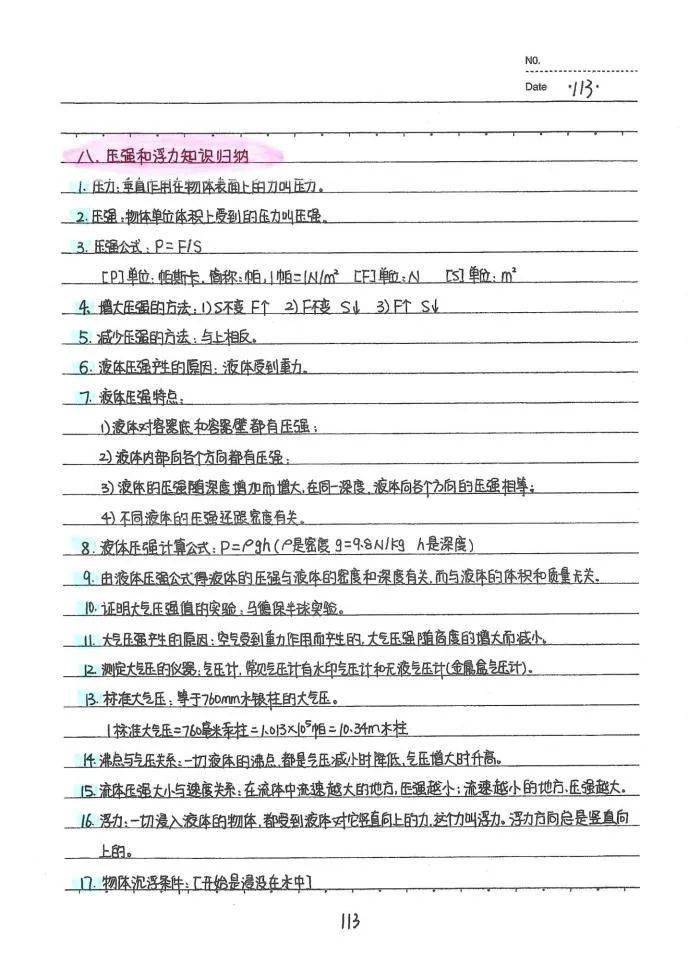 NO.
Date ·113·
八. 压强和浮力知识归纳
1. 压力:垂直作用在物体表面上的力叫压力。
2. 压强:物体单位体积上受到的压力叫压强。
3. 压强公式:P=F/S
[P]单位:帕斯卡.简称:帕,1帕=1N/m² [F]单位:N [S]单位:m²
4. 增大压强的方法:1)S不变 F↑ 2)F不变 S↓ 3)F↑ S↓
5. 减少压强的方法:与上相反。
6. 液体压强产生的原因:液体受到重力。
7. 液体压强特点:
1)液体对容器底和容器壁都有压强;
2)液体内部向各个方向都有压强;
3)液体的压强随深度增加而增大,在同一深度,液体向各个方向的压强相等;
4)不同液体的压强还跟密度有关。
8. 液体压强计算公式:P=ρgh(ρ是密度 g=9.8N/kg h是深度)
9. 由液体压强公式得液体的压强与液体的密度和深度有关,而与液体的体积和质量无关。
10. 证明大气压强值的实验:马德保半球实验。
11. 大气压强产生的原因:空气受到重力作用而产生的,大气压强随高度的增大而减小。
12. 测定大气压的仪器:气压计,常见气压计有水印气压计和无液气压计(金属盒气压计)。
13. 标准大气压:等于760mm水银柱的大气压。
1标准大气压=760毫米汞柱=1.013×10⁵帕=10.34m水柱
14. 沸点与气压关系:一切液体的沸点,都是气压减小时降低,气压增大时升高。
15. 流体压强大小与速度关系:在流体中流速越大的地方,压强越小;流速越小的地方,压强越大。
16. 浮力:一切浸入液体的物体,都受到液体对它竖直向上的力,这个力叫浮力。浮力方向总是竖直向
上的。
17. 物体沉浮条件:[开始是浸没在水中]
113